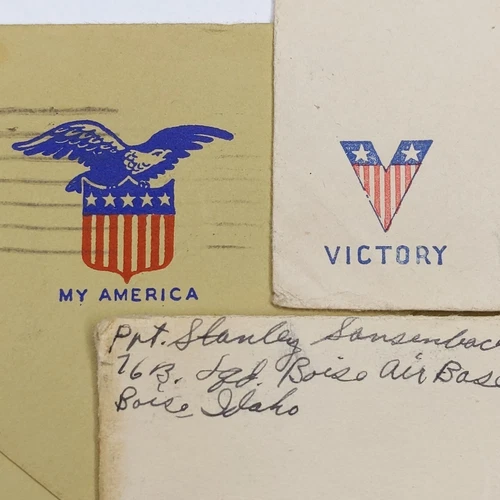 MY AMERICA
VICTORY
Pvt. Stanley
Sqd. Boise Air Base
Boise, Idaho